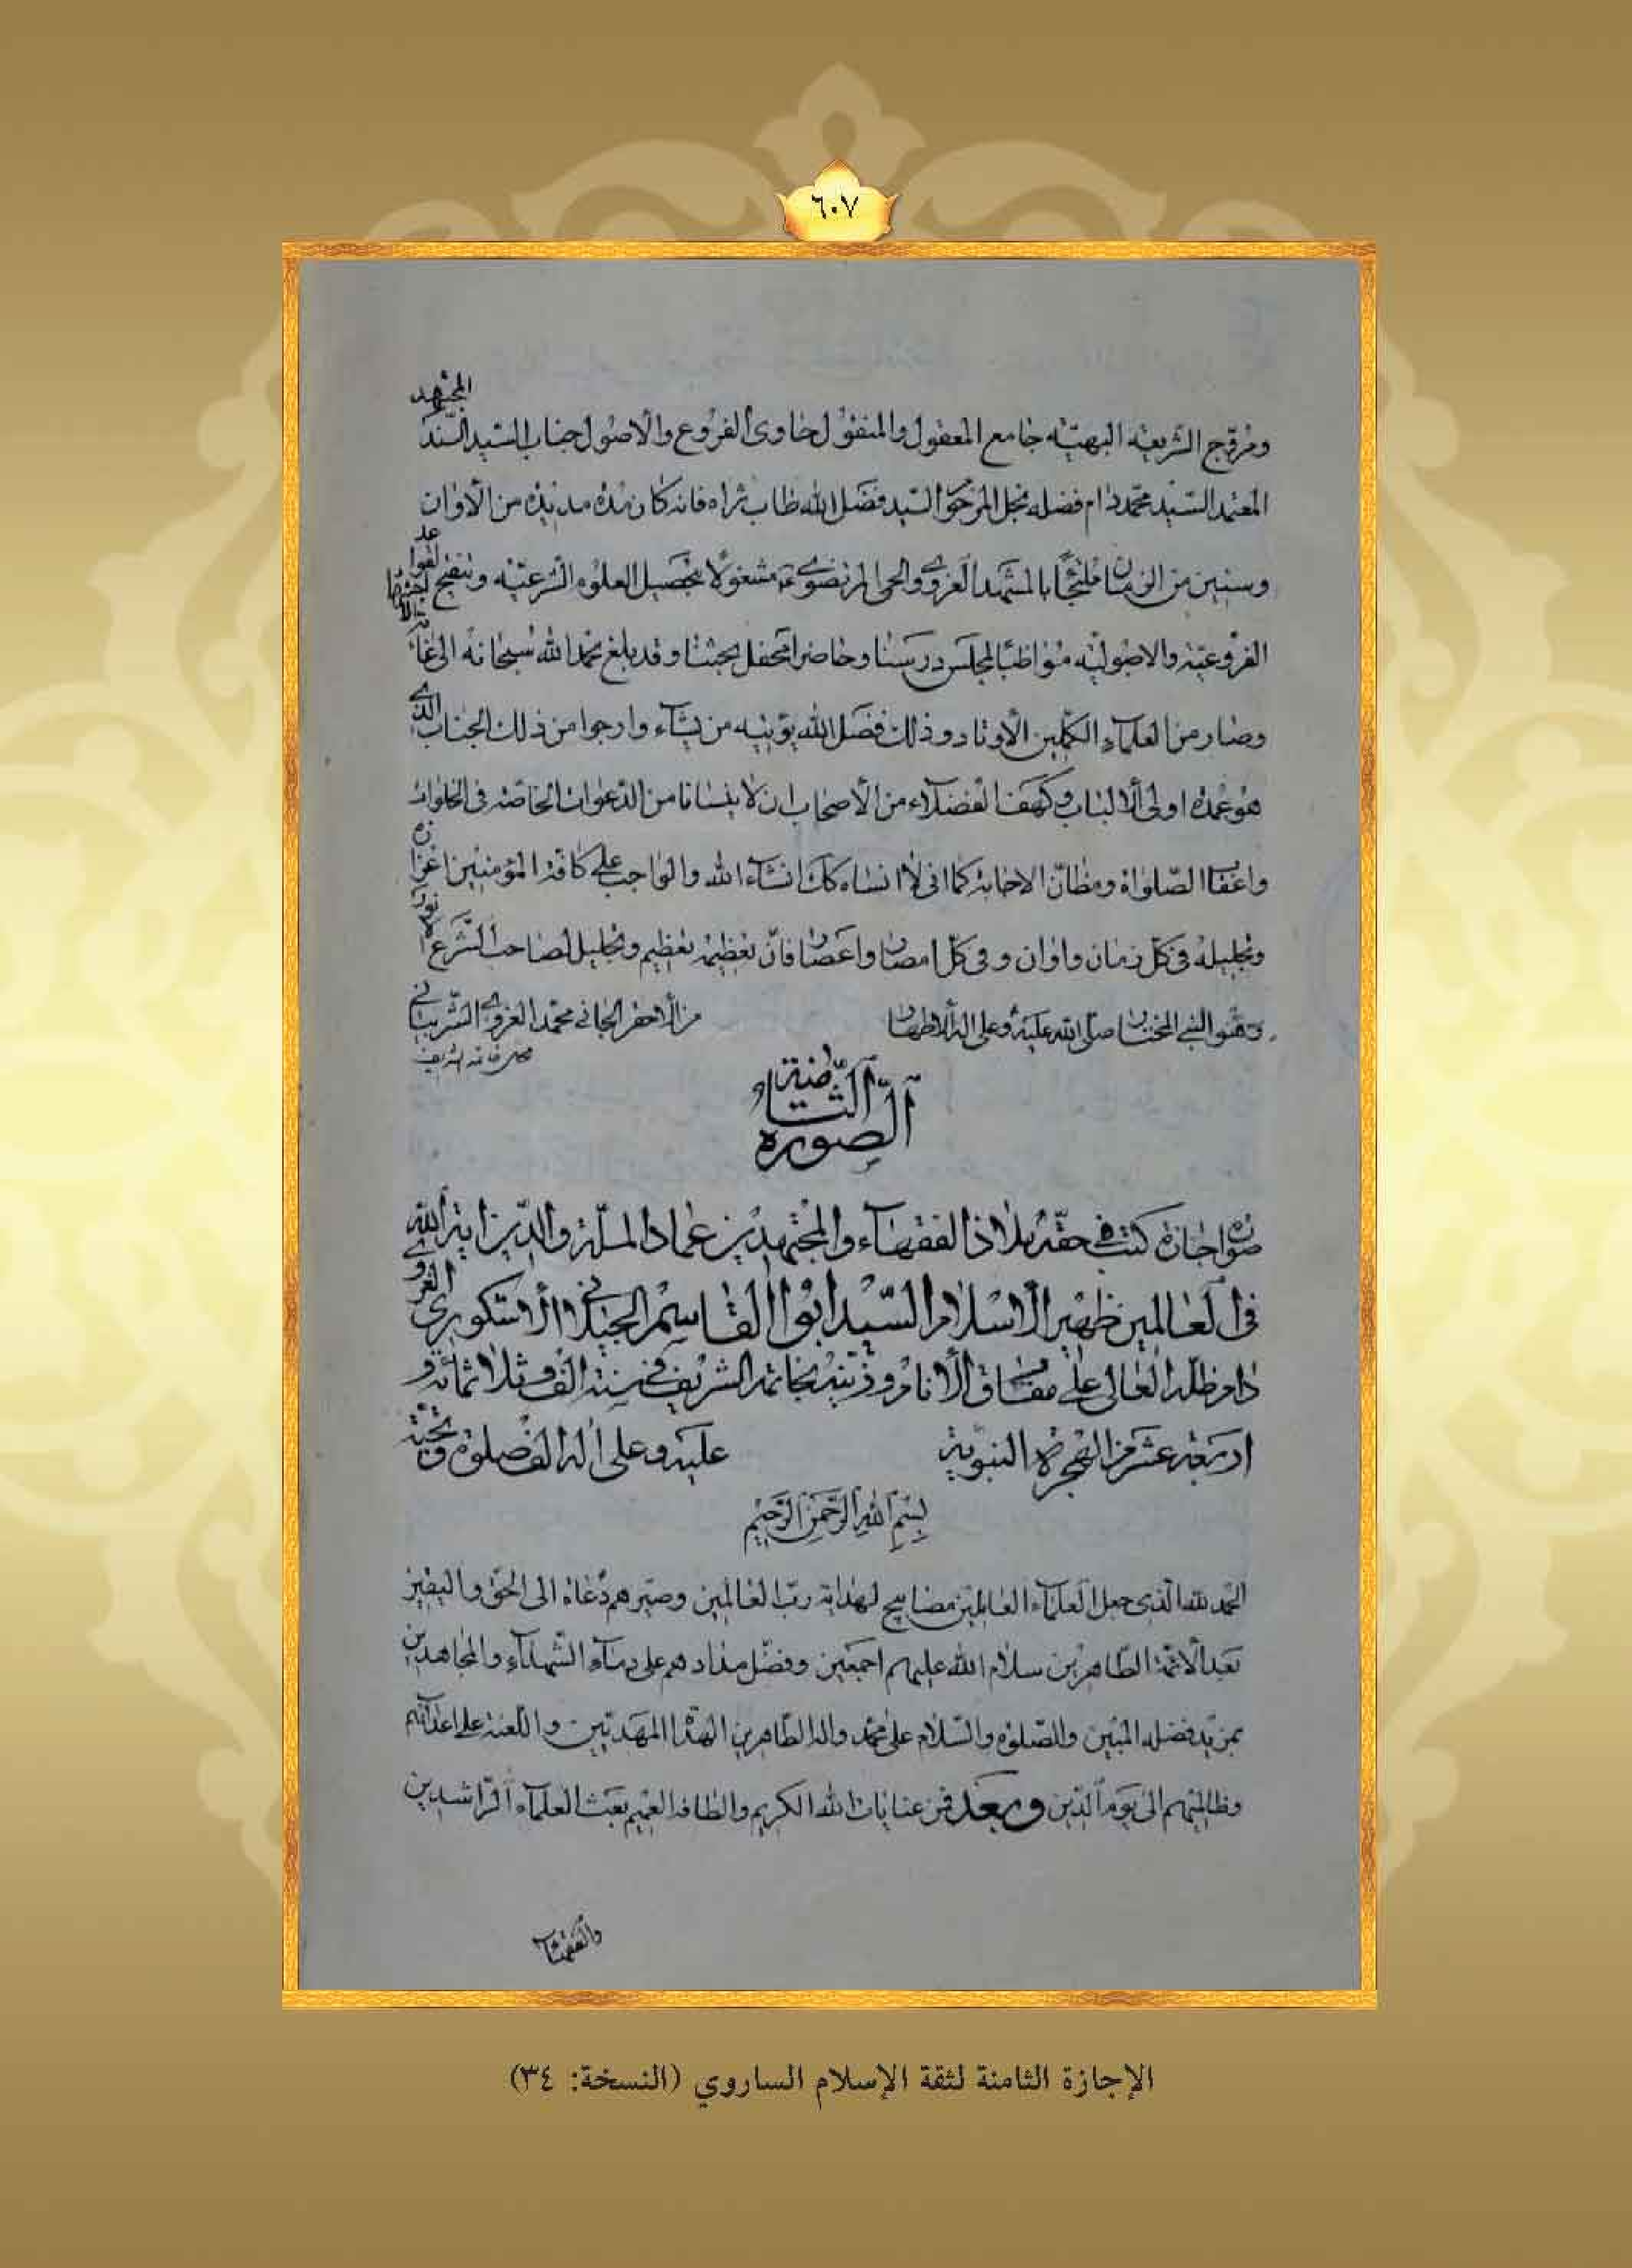 ٦٠٧
ومروّج الشريعه البهيّه جامع المعقول والمنقول حاوى الفروع والاصول جناب السيد السّند المجتهد
المعتمد السّيد محمّد دام فضله نجل المرحوم السّيد فضل الله طاب ثراه فانه كان مدّة مديده من الاوان
وسنين من الزمان ملتجئًا بالمشهد الغروي والحمى المرتضوي مشغولًا بتحصيل العلوم الشرعيّه وتنقيح القواعد
الفروعيّه والاصوليّه مواظبًا لمجلس درسنا وحاضرا محفل بحثنا وقد بلغ بحمد الله سُبحانه الى
وصار من العلماء الكمّلين الاوتاد وذلك فضل الله يؤتيه من يشآء وارجوا من ذلك الجناب الذي
هو عمدة اولى الالباب وكهف الفضلاء من الأصحاب ان لا ينسانا من الدّعوات الخاصّه فى الخلوات
واعقاب الصّلواة ومظانّ الاجابة كما انى لا انساه كك انشآء الله والواجب على كافّة المؤمنين اعزازه
وتجليله فى كلّ زمان واوان وفى كلّ امصار واعصار فانّ تعظيمه تعظيم وتجليل لصاحب الشّرع
وهو النبي المختار صلّى الله عليه وعلى اله الاطهار من الأحقر الجاني محمّد الغروي الشّربياني
محل خاتمه الشريف
الصّورة الثّامنة
صورة اجازة كتب في حقّه ملاذ الفقهآء والمجتهدين عماد الملّة والدّين اية الله
فى العالمين ظهير الاسلام السّيد ابو القاسم الجيلاني الاشكوري الغروي
دام ظلّه العالى على مفارق الأنام وزيّنه بخاتمه الشريف في سنة الف وثلاثمائة و
اربعة عشر من الهجرة النبويّة عليه وعلى اله الف صلوة وتحيّة
بسم الله الرّحمن الرّحيم
الحمد لله الّذى جعل العلمآء العاملين مصابيح لهداية ربّ العالمين وصيّرهم دُعاة الى الحقّ واليقين
بعد الائمّة الطّاهرين سلام الله عليهم اجمعين وفضّل مدادهم على دمآء الشّهدآء والمجاهدين
بمزيد فضله المبين والصّلوة والسّلام على محمّد واله الطّاهرين الهداة المهديّين واللّعنة على اعدائهم
وظالميهم الى يوم الدّين وبعد فمن عنايات الله الكريم والطافه العميم بعث العلمآء الرّاشدين
الإجازة الثامنة لثقة الإسلام الساروي (النسخة: ٣٤)